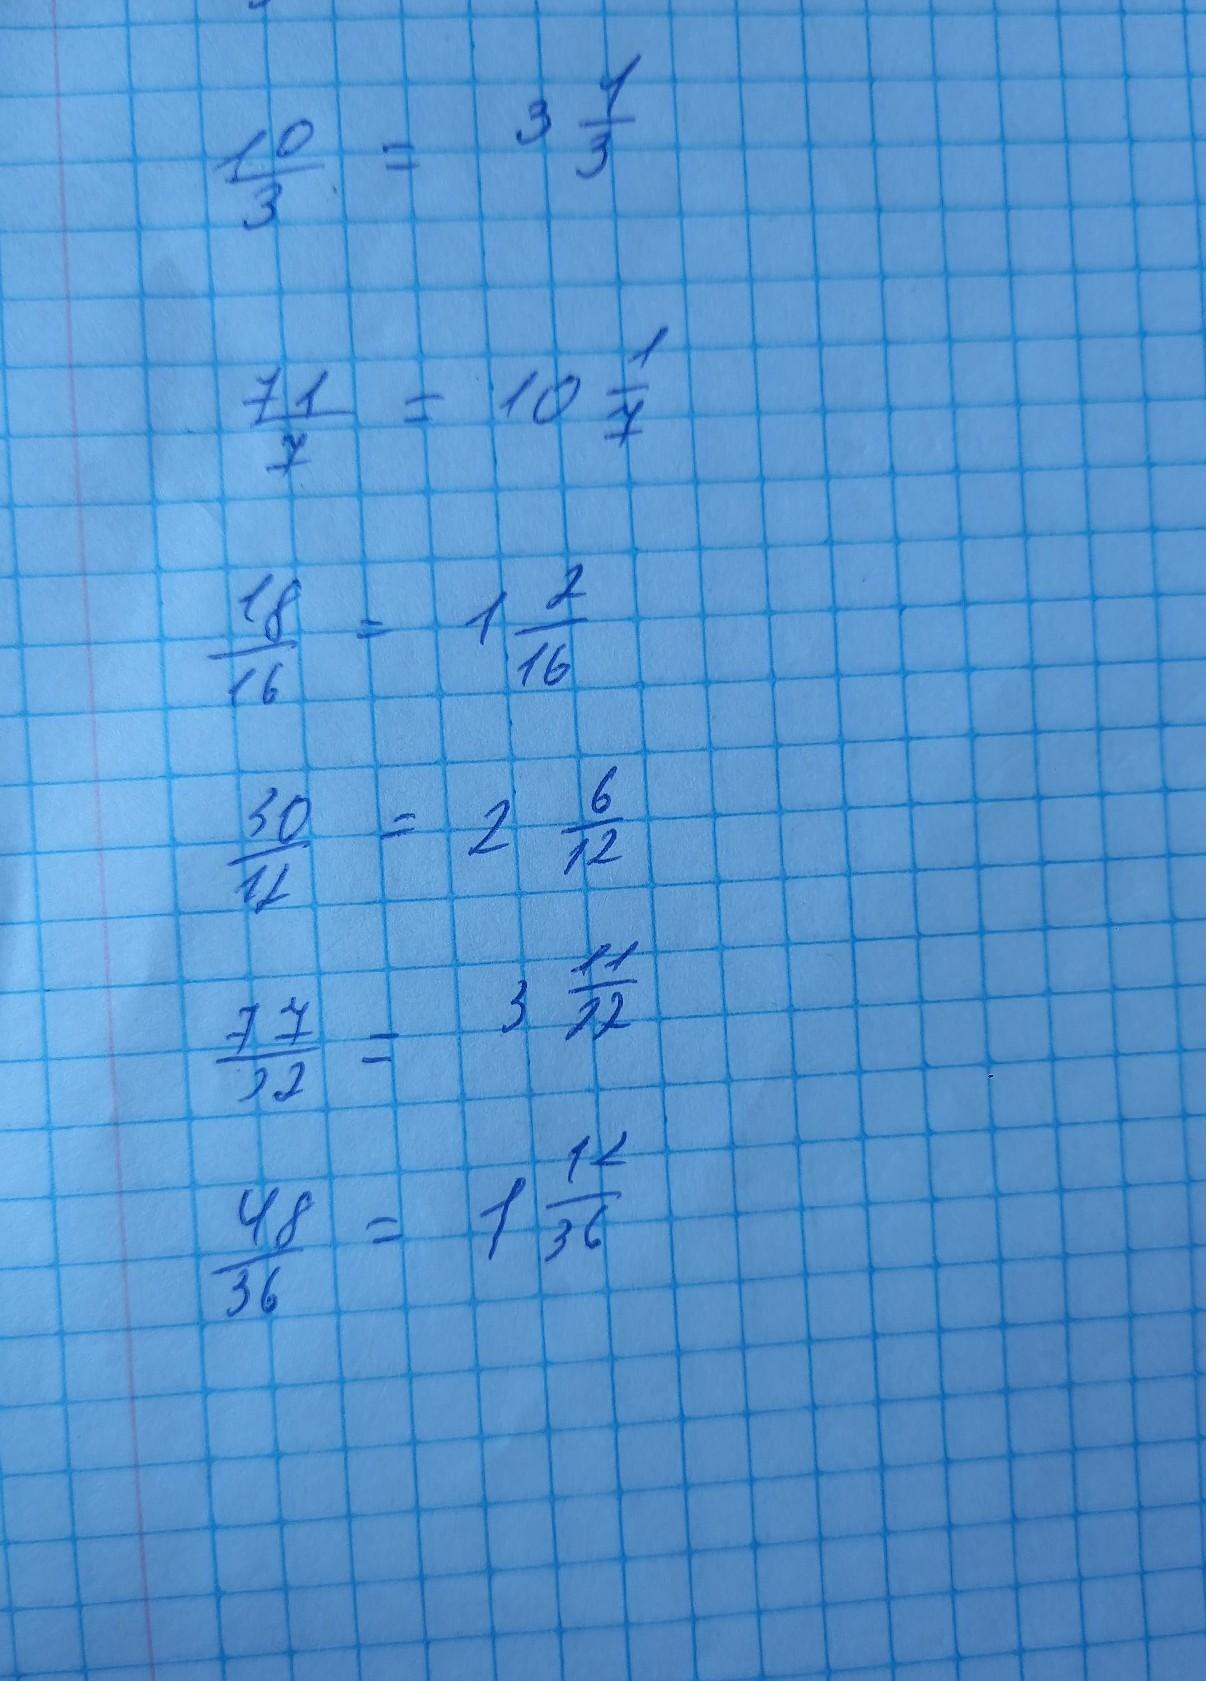 10/3 = 3 1/3
71/7 = 10 1/7
18/16 = 1 2/16
30/12 = 2 6/12
77/22 = 3 11/22
48/36 = 1 12/36